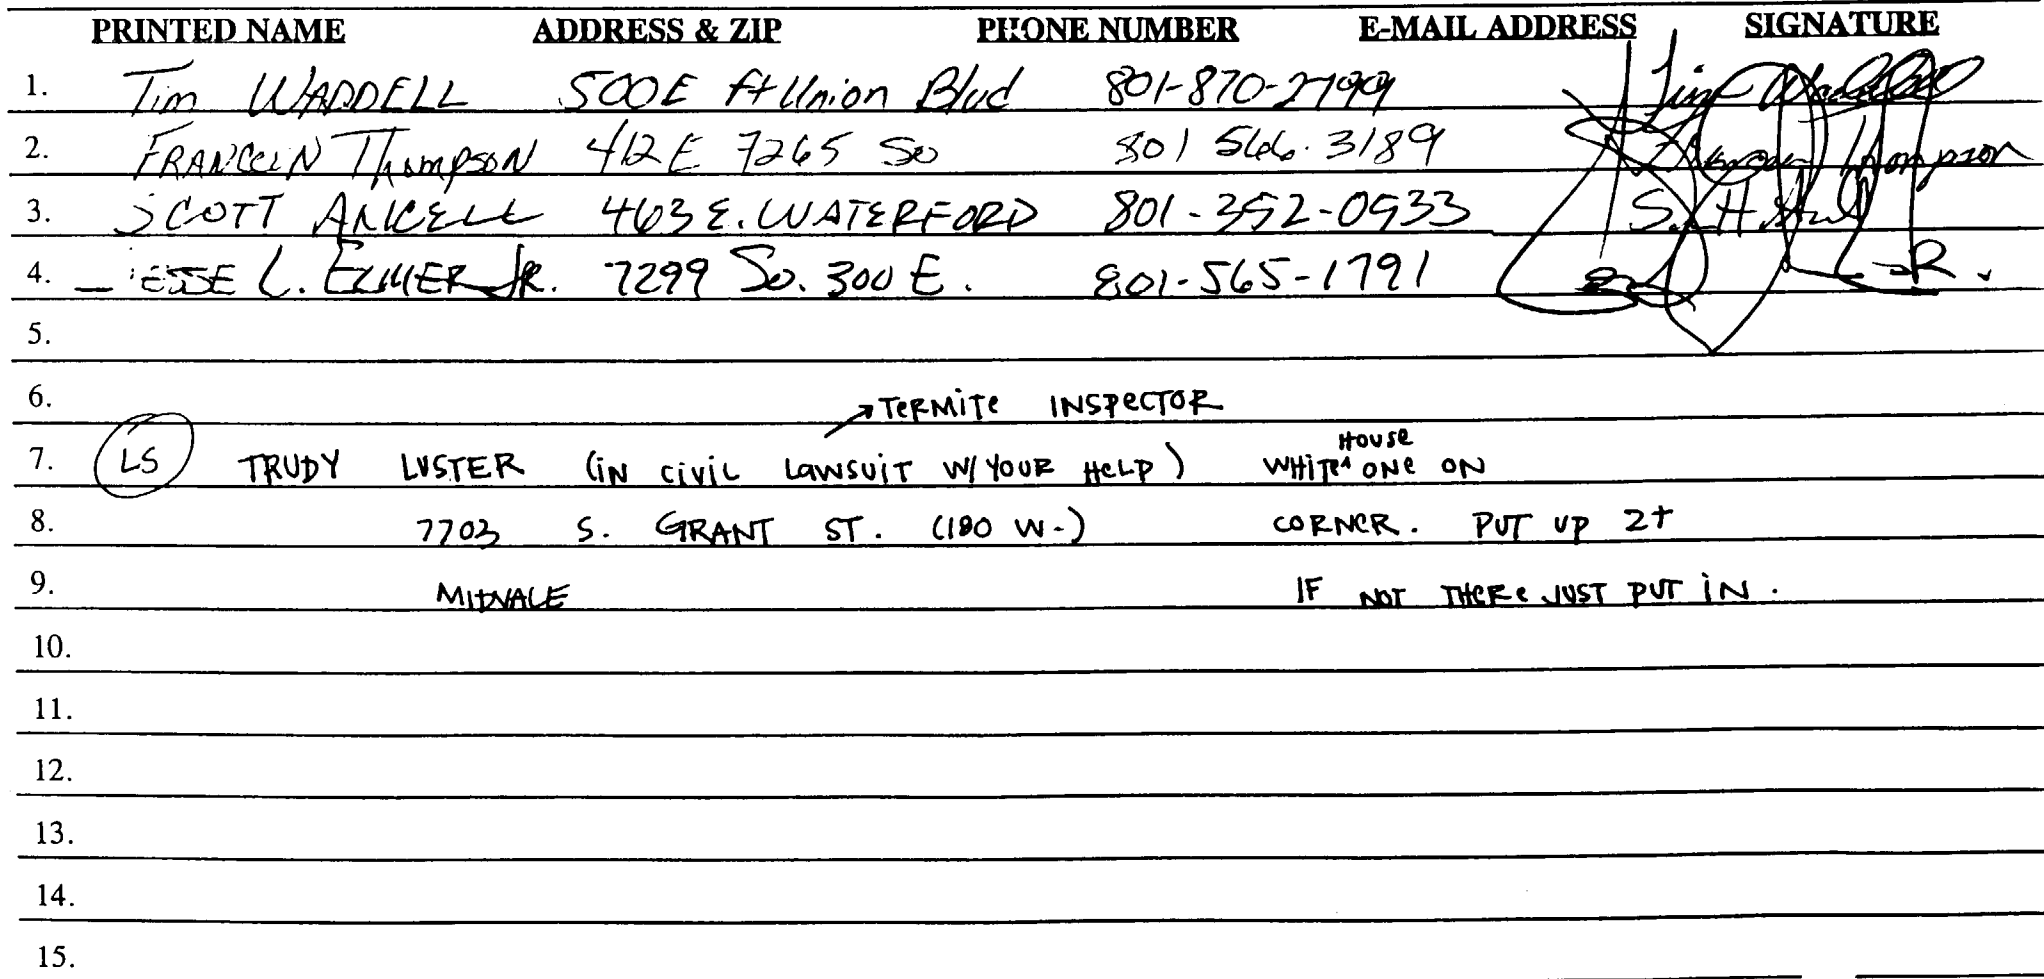 PRINTED NAME ADDRESS & ZIP PHONE NUMBER E-MAIL ADDRESS SIGNATURE
1. Tim WADDELL 500E Ft Union Blvd 801-870-2799 Tim Waddell
2. FRANCEIN Thompson 412 E 7265 So 801 566.3189 Thompson
3. SCOTT ANCELL 463 E. WATERFORD 801-352-0533
4. JESSE L. ELMER JR. 7299 So. 300 E. 801-565-1791 JR.
5.
6. → TERMITE INSPECTOR
7. LS TRUDY LUSTER (IN CIVIL LAWSUIT W/ YOUR HELP) WHITE HOUSE ONE ON
8. 7703 S. GRANT ST. (180 W-) CORNER. PUT UP 2+
9. MIDVALE IF NOT THERE JUST PUT IN.
10.
11.
12.
13.
14.
15.